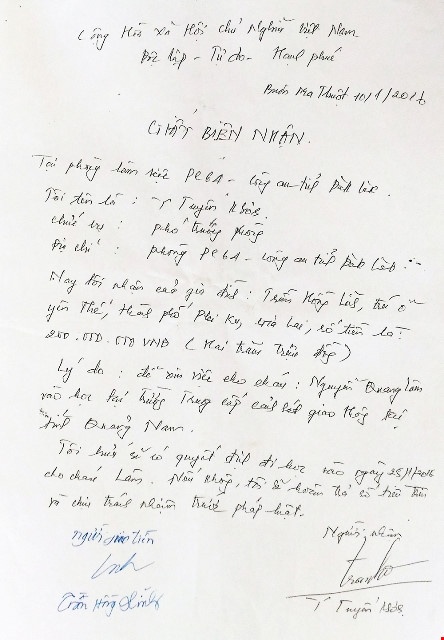 Cộng Hòa xã Hội chủ Nghĩa Việt Nam
Độc lập - Tự do - Hạnh phúc
Buôn Ma Thuột 10/1/2016
GIẤY BIÊN NHẬN.
Tại phòng làm việc PC81 - Công an tỉnh Đắk Lắk.
Tôi tên là : Tuyến
chức vụ : phó trưởng phòng
Địa chỉ : phòng PC81 - Công an tỉnh Đắk Lắk
Nay tôi nhận của gia đình : Trần Hồng trú ở
yên Thế, Thành phố Plei Ku, Gia Lai, số tiền là:
250.000.000 VNĐ ( Hai trăm triệu đồng )
Lý do : để xin việc cho cháu : Nguyễn Quang Lâm
vào học tại Trường Trung cấp cảnh sát giao thông tại
tỉnh Quảng Nam.
Tôi hứa sẽ có quyết định đi học vào ngày 25/1/2016
cho cháu Lâm. Nếu không, tôi sẽ hoàn trả số tiền trên
và chịu trách nhiệm trước pháp luật.
Người giao tiền
Người nhận
Trần Hồng
Tuyến